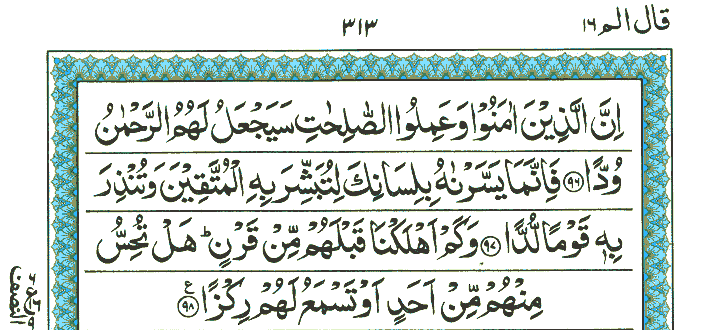 قال الم ١٦
٣١٣
اِنَّ الَّذِيْنَ اٰمَنُوْا وَعَمِلُوا الصّٰلِحٰتِ سَيَجْعَلُ لَهُمُ الرَّحْمٰنُ
وُدًّا ۝٩٦ فَاِنَّمَا يَسَّرْنٰهُ بِلِسَانِكَ لِتُبَشِّرَ بِهِ الْمُتَّقِيْنَ وَتُنْذِرَ
بِهٖ قَوْمًا لُّدًّا ۝٩٧ وَكَمْ اَهْلَكْنَا قَبْلَهُمْ مِّنْ قَرْنٍ ؕ هَلْ تُحِسُّ
مِنْهُمْ مِّنْ اَحَدٍ اَوْ تَسْمَعُ لَهُمْ رِكْزًا ۝٩٨ ع